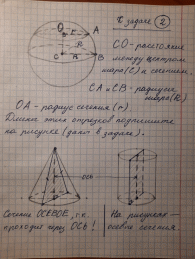 К задаче 2
O
A
R
C
R
B
CO - расстояние
между центром
шара(C) и сечением.
CA и CB - радиусы
шара(R)
OA - радиус сечения (r)
Длины этих отрезков подпишите
на рисунке (даны в задаче).
ось
Сечение ОСЕВОЕ, т.к.
проходит через ОСЬ!
На рисунках -
осевые сечения.